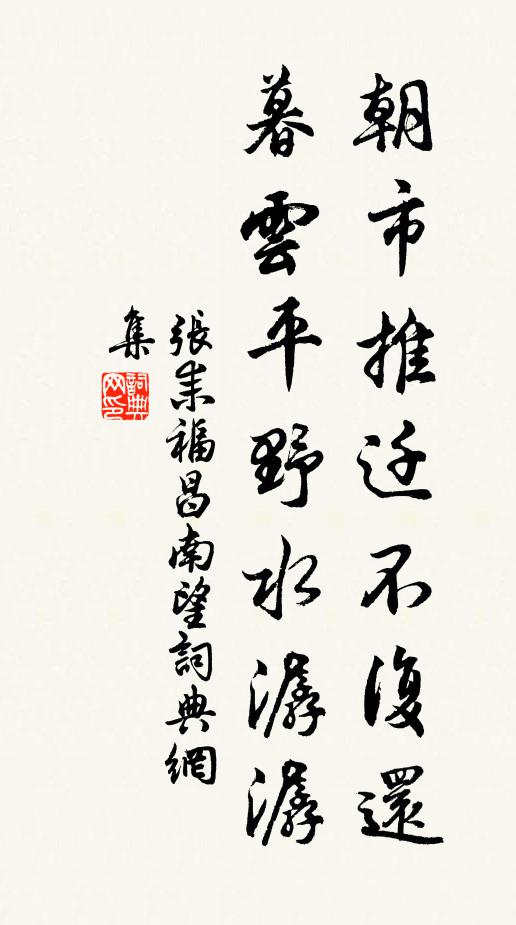 朝市推迁不復還
暮雲平野水潺潺
張耒福昌南望詞典網
集
詞典
网印